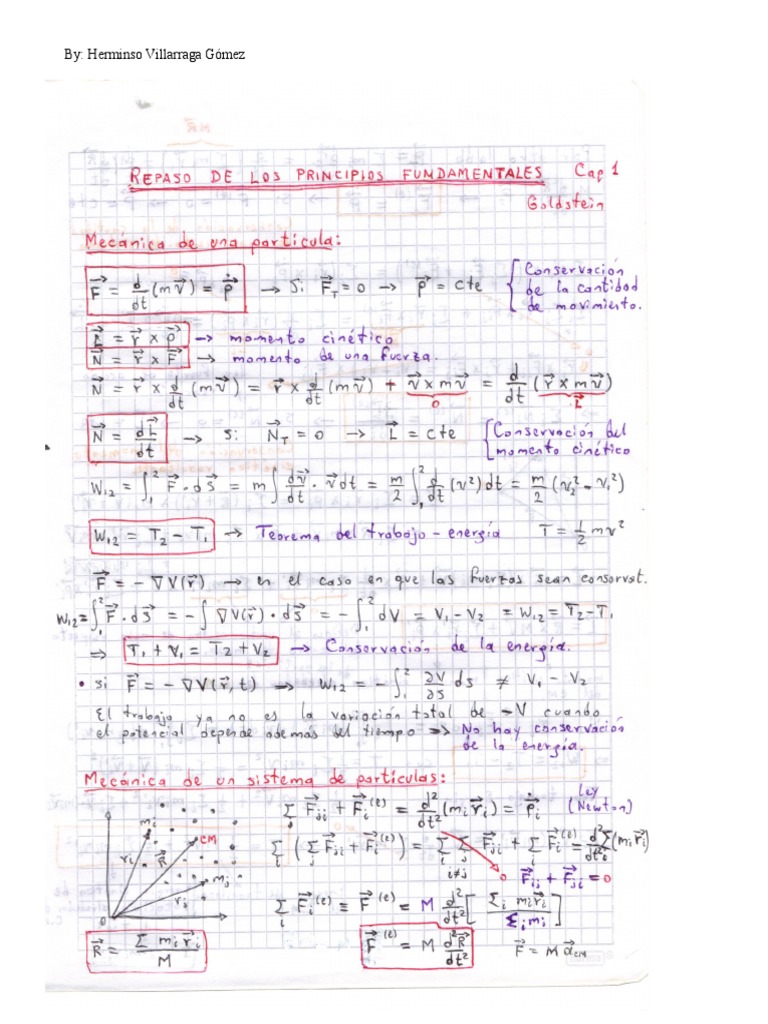 By: Herminso Villarraga Gómez
REPASO DE LOS PRINCIPIOS FUNDAMENTALES Cap 1
Goldstein
Mecánica de una partícula:
F⃗ = d/dt (m v⃗) = ṗ⃗ → Si F⃗_T = 0 → p⃗ = cte { Conservación de la cantidad de movimiento.
L⃗ = r⃗ × p⃗ → momento cinético
N⃗ = r⃗ × F⃗ → momento de una fuerza.
N⃗ = r⃗ × d/dt (m v⃗) = r⃗ × d/dt (m v⃗) + v⃗ × m v⃗ = d/dt (r⃗ × m v⃗)
0 L⃗
N⃗ = dL⃗/dt → Si N⃗_T = 0 → L⃗ = cte [ Conservación del momento cinético
W₁₂ = ∫₁² F⃗ · dS⃗ = m ∫ dv⃗/dt · v⃗ dt = m/2 ∫₁² d/dt (v²) dt = m/2 (v₂² - v₁²)
W₁₂ = T₂ - T₁ → Teorema del trabajo - energía T = 1/2 m v²
F⃗ = - ∇V(r⃗) → en el caso en que las fuerzas sean conservat.
W₁₂ = ∫₁² F⃗ · dS⃗ = - ∫ ∇V(r⃗) · dS⃗ = - ∫₁² dV = V₁ - V₂ = W₁₂ = T₂ - T₁
⇒ T₁ + V₁ = T₂ + V₂ → Conservación de la energía.
• si F⃗ = - ∇V(r⃗, t) ⇒ W₁₂ = - ∫₁² ∂V/∂S ds ≠ V₁ - V₂
El trabajo ya no es la variación total de -V cuando
el potencial depende además del tiempo ⇒ No hay conservación
de la energía.
Mecánica de un sistema de partículas:
Σ_j F⃗_ji + F⃗_i^(e) = d²/dt² (m_i r⃗_i) = ṗ⃗_i Ley (Newton)
m_i CM R⃗ r_i m_j r_j 0
Σ_i (Σ_j F⃗_ji + F⃗_i^(e)) = Σ_i Σ_j F⃗_ji + Σ_i F⃗_i^(e) = d²/dt² Σ_i (m_i r⃗_i)
i≠j 0 F⃗_ij + F⃗_ji = 0
Σ_i F⃗_i^(e) ≡ F⃗^(e) = M d²/dt² [ Σ_i m_i r⃗_i / Σ_i m_i ]
R⃗ = Σ m_i r⃗_i / M F⃗^(e) = M d²R⃗/dt² F⃗ = M a⃗_CM